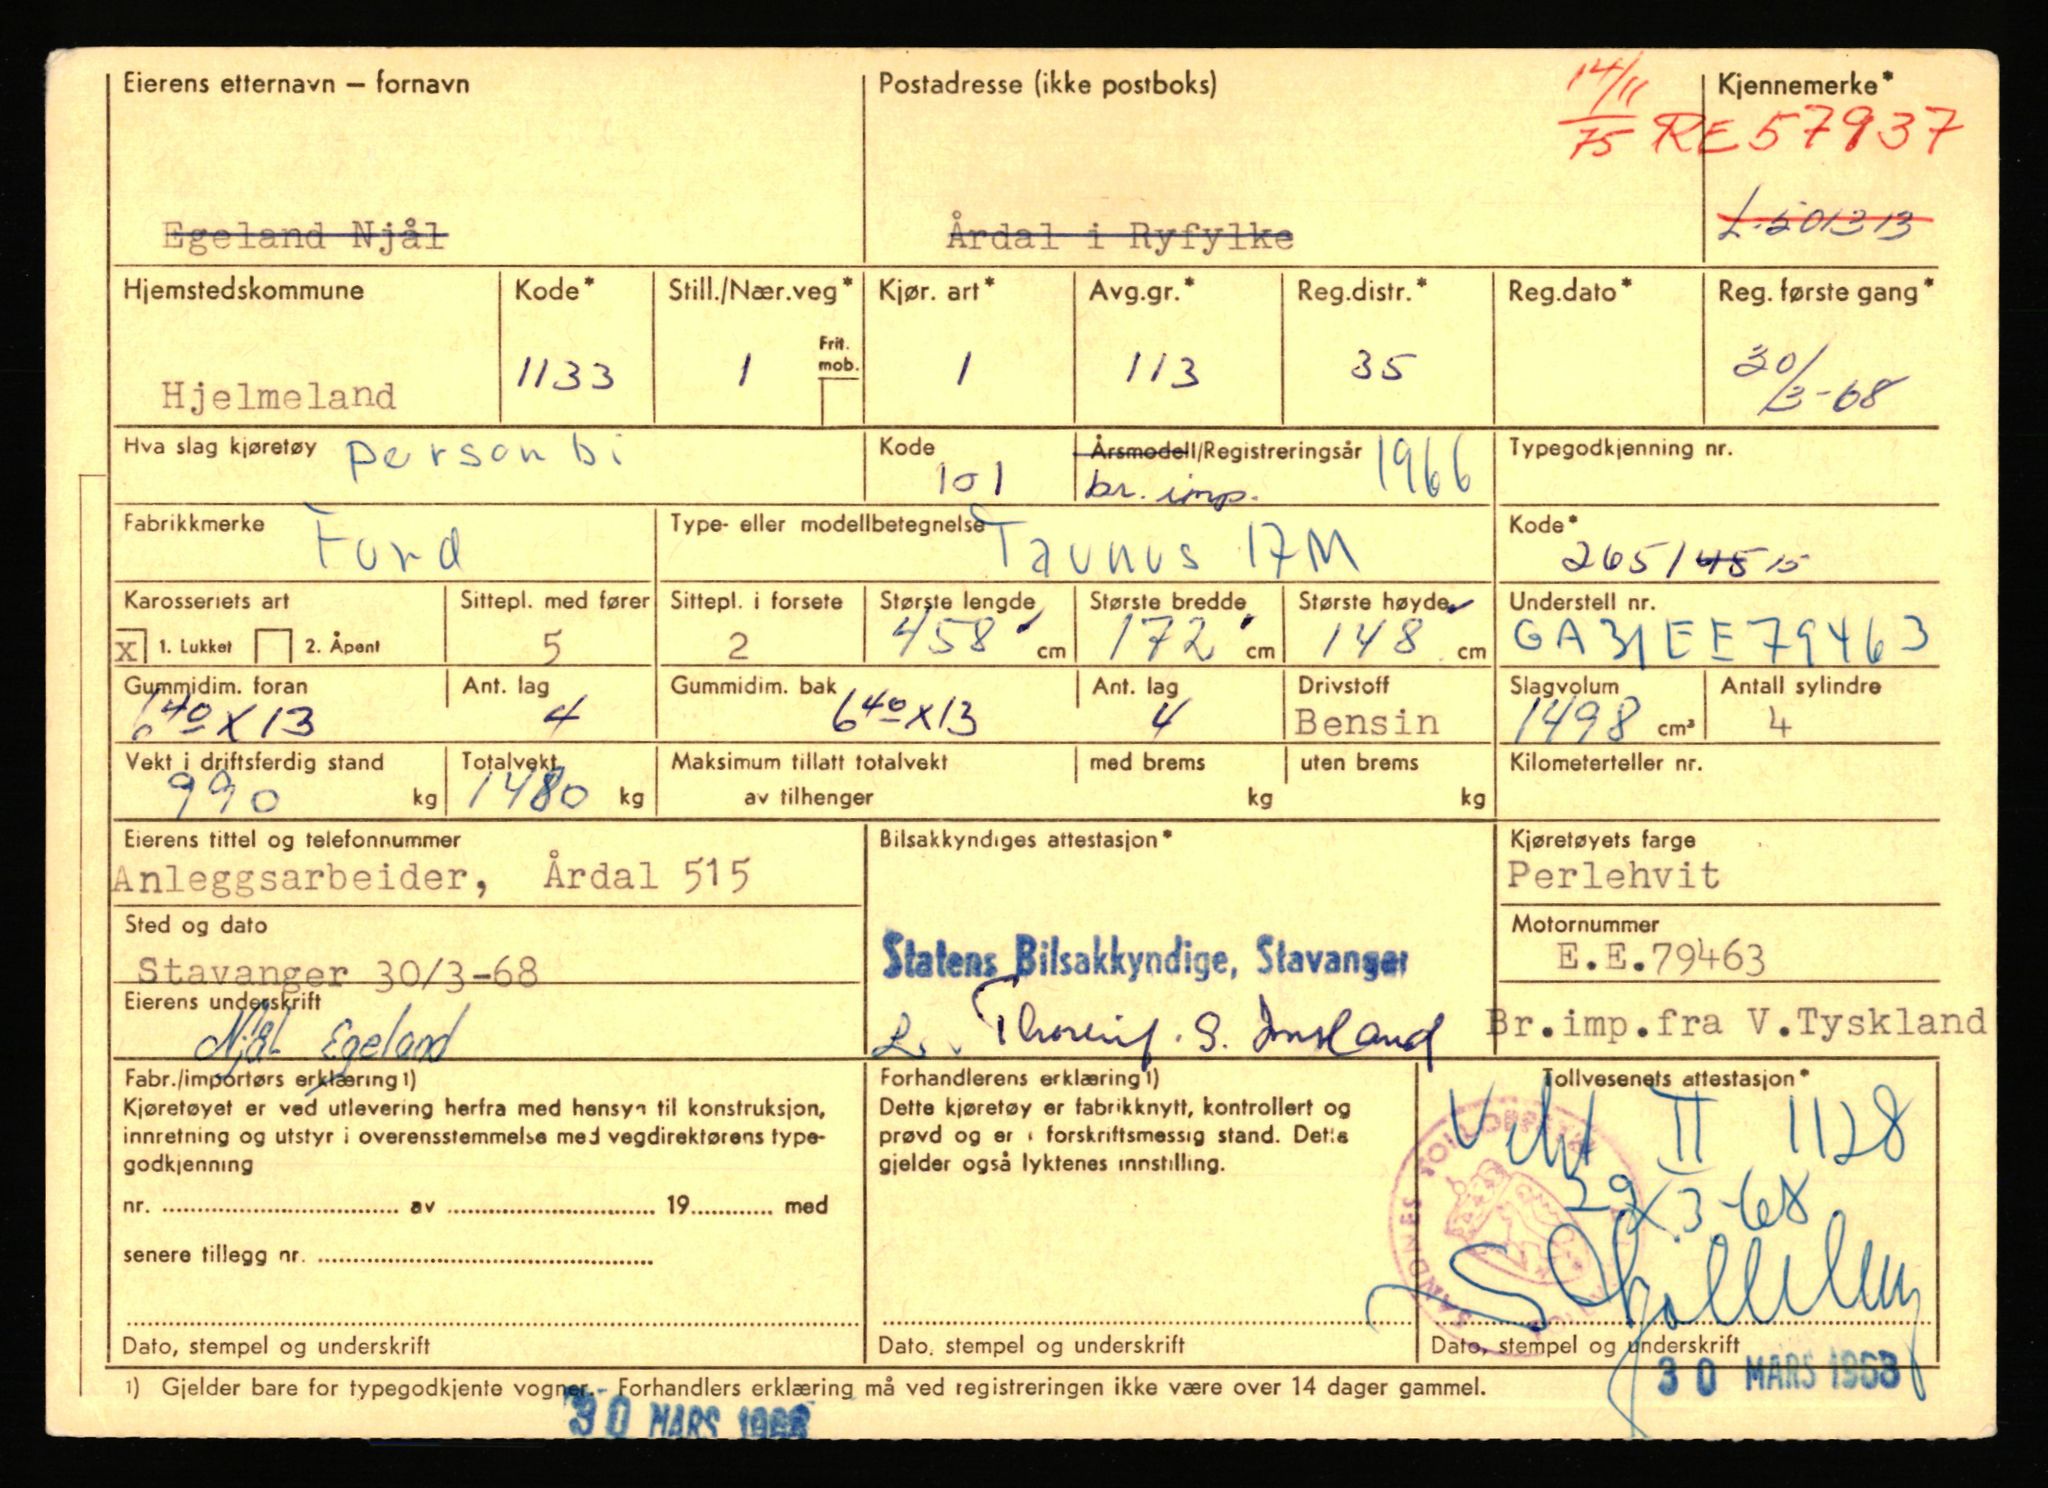 Eierens etternavn — fornavn
Postadresse (ikke postboks)
14/11 75
Kjennemerke*
RE57937
L-501313
Egeland Njål
Årdal i Ryfylke
Hjemstedskommune Kode* Still./Nær.veg* Kjør. art* Avg.gr.* Reg.distr.* Reg.dato* Reg. første gang*
Frit. mob.
Hjelmeland 1133 1 1 113 35 30/3-68
Hva slag kjøretøy personbi Kode 101 Årsmodell/Registreringsår 1966 Typegodkjenning nr.
br. imp.
Fabrikkmerke Ford Type- eller modellbetegnelse Taunus 17M Kode*
2651 45 15
Karosseriets art Sittepl. med fører Sittepl. i forsete Største lengde Største bredde Største høyde Understell nr.
X 1. Lukket 2. Åpent 5 2 458 cm 172 cm 148 cm GA31EE79463
Gummidim. foran Ant. lag Gummidim. bak Ant. lag Drivstoff Slagvolum Antall sylindre
640 x 13 4 640 x 13 4 Bensin 1498 cm³ 4
Vekt i driftsferdig stand Totalvekt Maksimum tillatt totalvekt med brems uten brems Kilometerteller nr.
990 kg 1480 kg av tilhenger kg kg
Eierens tittel og telefonnummer Bilsakkyndiges attestasjon* Kjøretøyets farge
Anleggsarbeider, Årdal 515 Perlehvit
Sted og dato Motornummer
Statens Bilsakkyndige, Stavanger
Stavanger 30/3-68 E.E.79463
Eierens underskrift
Njål Egeland
Br.imp.fra V.Tyskland
Fabr./importørs erklæring 1) Forhandlerens erklæring 1) Tollvesenets attestasjon*
Kjøretøyet er ved utlevering herfra med hensyn til konstruksjon,
innretning og utstyr i overensstemmelse med vegdirektørens type-
godkjenning
Dette kjøretøy er fabrikknytt, kontrollert og
prøvd og er i forskriftsmessig stand. Dette
gjelder også lyktenes innstilling.
II 1128
29/3-68
SANDNES
nr. ........ av ........ 19........ med
senere tillegg nr. ........
Dato, stempel og underskrift Dato, stempel og underskrift Dato, stempel og underskrift
30 MARS 1968
1) Gjelder bare for typegodkjente vogner. Forhandlers erklæring må ved registreringen ikke være over 14 dager gammel.
30 MARS 1968